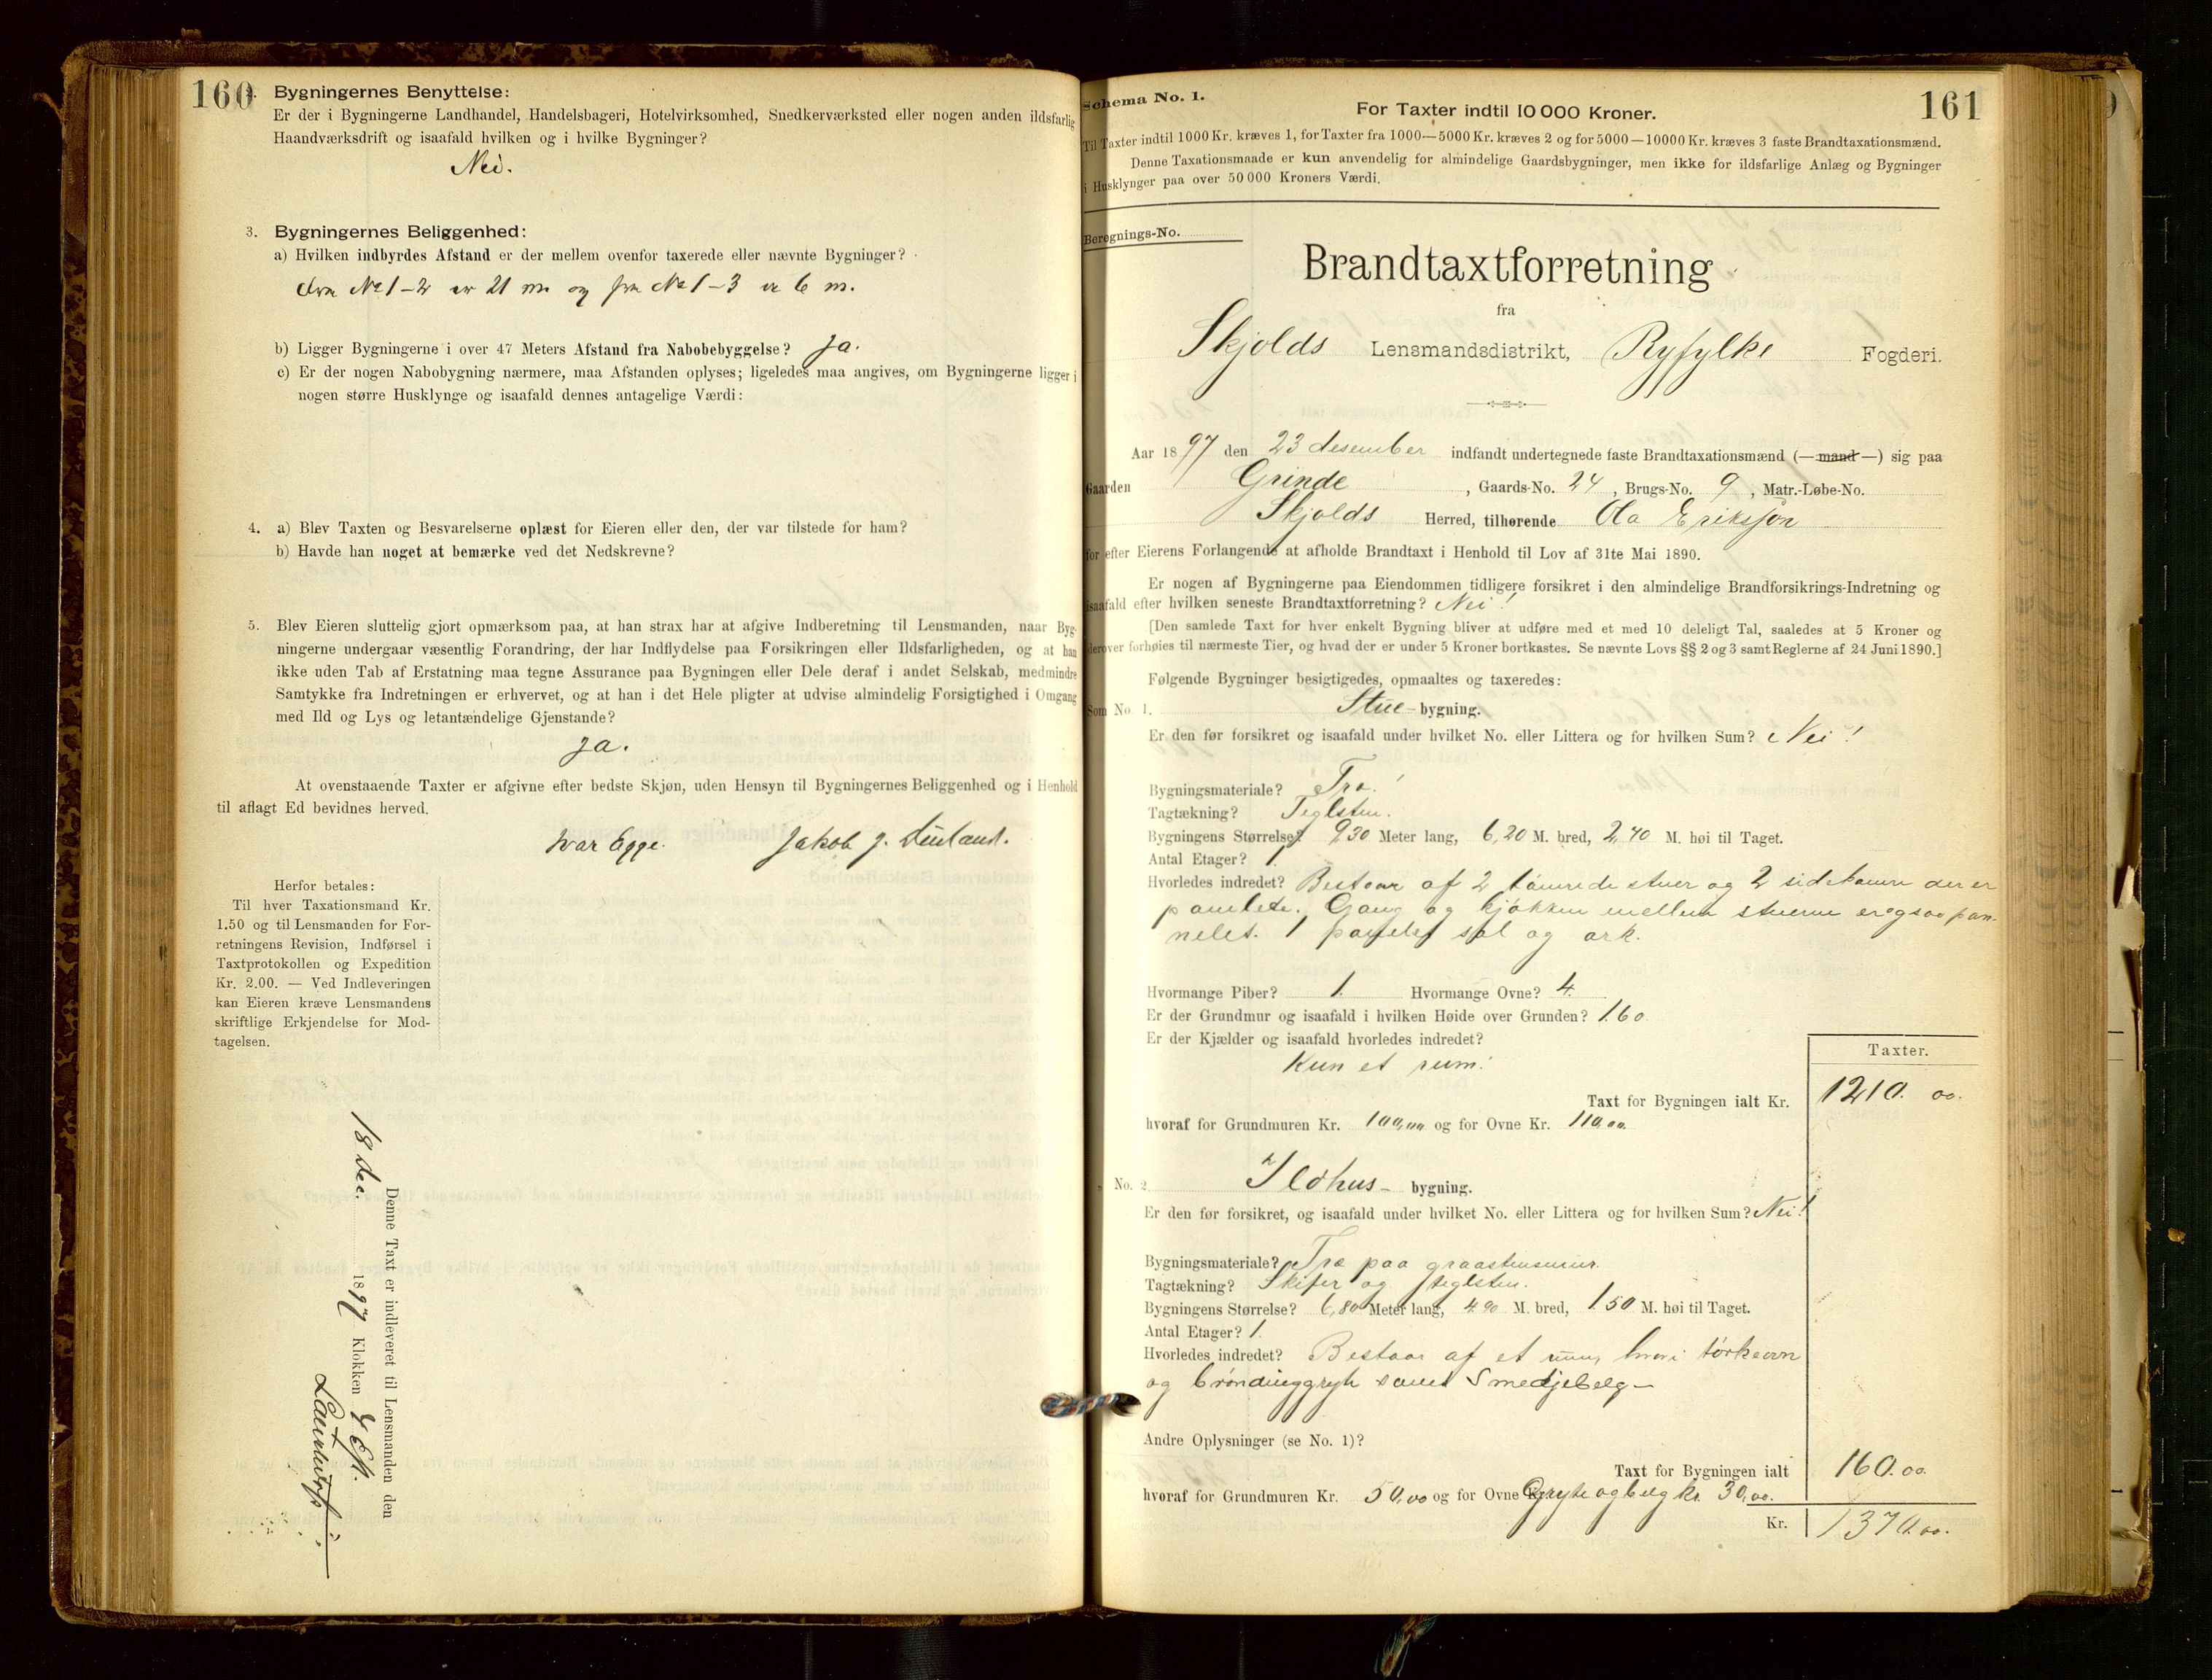 160
2. Bygningernes Benyttelse:
Er der i Bygningerne Landhandel, Handelsbageri, Hotelvirksomhed, Snedkerværksted eller nogen anden ildsfarlig
Haandværksdrift og isaafald hvilken og i hvilke Bygninger?
Nei.
3. Bygningernes Beliggenhed:
a) Hvilken indbyrdes Afstand er der mellem ovenfor taxerede eller nævnte Bygninger?
Fra No 1-2 er 21 m og fra No 1-3 er 6 m.
b) Ligger Bygningerne i over 47 Meters Afstand fra Nabobebyggelse? Ja.
c) Er der nogen Nabobygning nærmere, maa Afstanden oplyses; ligeledes maa angives, om Bygningerne ligger i
nogen større Husklynge og isaafald dennes antagelige Værdi:
4. a) Blev Taxten og Besvarelserne oplæst for Eieren eller den, der var tilstede for ham?
b) Havde han noget at bemærke ved det Nedskrevne?
5. Blev Eieren sluttelig gjort opmærksom paa, at han strax har at afgive Indberetning til Lensmanden, naar Byg-
ningerne undergaar væsentlig Forandring, der har Indflydelse paa Forsikringen eller Ildsfarligheden, og at han
ikke uden Tab af Erstatning maa tegne Assurance paa Bygningen eller Dele deraf i andet Selskab, medmindre
Samtykke fra Indretningen er erhvervet, og at han i det Hele pligter at udvise almindelig Forsigtighed i Omgang
med Ild og Lys og letantændelige Gjenstande?
Ja.
At ovenstaaende Taxter er afgivne efter bedste Skjøn, uden Hensyn til Bygningernes Beliggenhed og i Henhold
til aflagt Ed bevidnes herved.
Ivar Egge. Jakob J.
Herfor betales:
Til hver Taxationsmand Kr.
1.50 og til Lensmanden for For-
retningens Revision, Indførsel i
Taxtprotokollen og Expedition
Kr. 2.00. — Ved Indleveringen
kan Eieren kræve Lensmandens
skriftlige Erkjendelse for Mod-
tagelsen.
Denne Taxt er indleveret til Lensmanden den
18 dec. 1897 Klokken Eft.
Schema No. 1.
For Taxter indtil 10 000 Kroner.
161
Til Taxter indtil 1000 Kr. kræves 1, for Taxter fra 1000—5000 Kr. kræves 2 og for 5000—10000 Kr. kræves 3 faste Brandtaxationsmænd.
Denne Taxationsmaade er kun anvendelig for almindelige Gaardsbygninger, men ikke for ildsfarlige Anlæg og Bygninger
i Husklynger paa over 50 000 Kroners Værdi.
Beregnings-No.
Brandtaxtforretning
fra
Skjolds Lensmandsdistrikt, Ryfylke Fogderi.
Aar 1897 den 23 desember indfandt undertegnede faste Brandtaxationsmænd (—mand—) sig paa
Gaarden Grinde, Gaards-No. 24, Brugs-No. 9, Matr.-Løbe-No.
Skjolds Herred, tilhørende Ola Eriksson
for efter Eierens Forlangende at afholde Brandtaxt i Henhold til Lov af 31te Mai 1890.
Er nogen af Bygningerne paa Eiendommen tidligere forsikret i den almindelige Brandforsikrings-Indretning og
isaafald efter hvilken seneste Brandtaxtforretning? Nei!
[Den samlede Taxt for hver enkelt Bygning bliver at udføre med et med 10 deleligt Tal, saaledes at 5 Kroner og
derover forhøies til nærmeste Tier, og hvad der er under 5 Kroner bortkastes. Se nævnte Lovs §§ 2 og 3 samt Reglerne af 24 Juni 1890.]
Følgende Bygninger besigtigedes, opmaaltes og taxeredes:
Som No. 1. Stue-bygning.
Er den før forsikret og isaafald under hvilket No. eller Littera og for hvilken Sum? Nei!
Bygningsmateriale? Træ!
Tagtækning? Teglsten.
Bygningens Størrelse? 9,30 Meter lang, 6,20 M. bred, 2,40 M. høi til Taget.
Antal Etager? 1.
Hvorledes indredet? Bestaar af 2 tømrede stuer og 2 sidekamre der er
panelede. Gang og kjøkken mellem stuerne er ogsaa pan-
nelet. 1 panelet sal og ark.
Hvormange Piber? 1. Hvormange Ovne? 4.
Er der Grundmur og isaafald i hvilken Høide over Grunden? 1.60
Er der Kjælder og isaafald hvorledes indredet?
Kun et rum!
Taxter.
Taxt for Bygningen ialt Kr. 1210. 00.
hvoraf for Grundmuren Kr. 100,00 og for Ovne Kr. 110,00.
„ No. 2. Ildhus- bygning.
Er den før forsikret, og isaafald under hvilket No. eller Littera og for hvilken Sum? Nei!
Bygningsmateriale? Træ paa graastensmur.
Tagtækning? Skifer og teglsten.
Bygningens Størrelse? 6,80 Meter lang, 4.90 M. bred, 1.50 M. høi til Taget.
Antal Etager? 1.
Hvorledes indredet? Bestaar af et rum, hvori tørkeovn
og samt Smedjebelg—
Andre Oplysninger (se No. 1)?
Taxt for Bygningen ialt 160.00
hvoraf for Grundmuren Kr. 50,00 og for Ovne Kr. Gryte og belg kr. 30,00.
Kr. 1370.00.